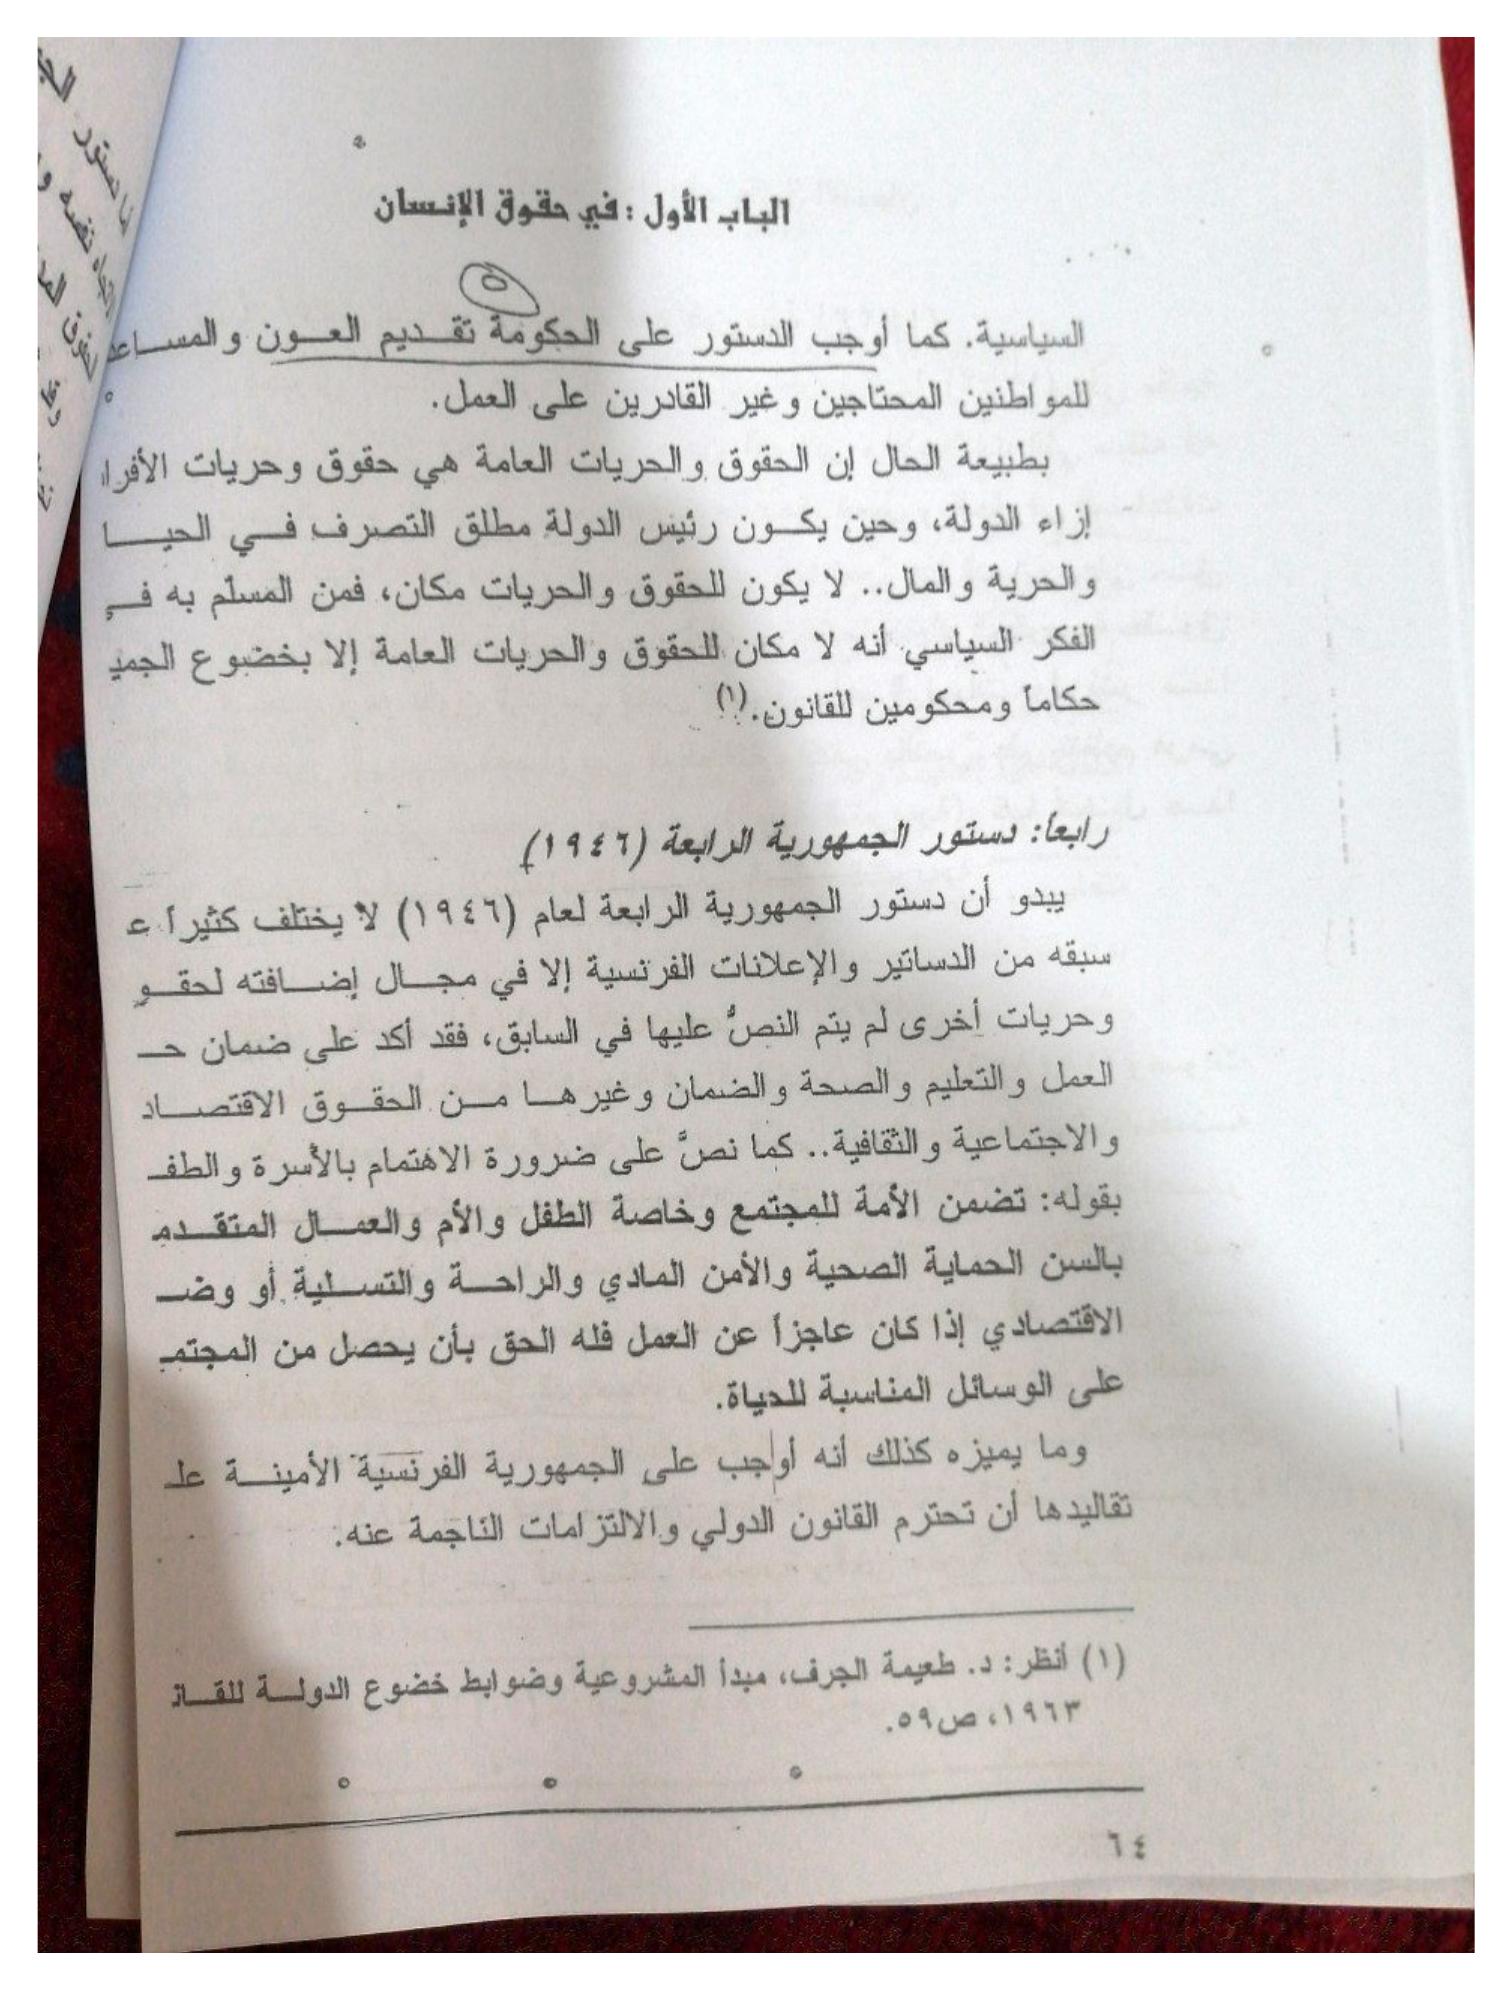 الباب الأول: في حقوق الإنسان
٥
السياسية. كما أوجب الدستور على الحكومة تقديم العون والمساعد
للمواطنين المحتاجين وغير القادرين على العمل.
بطبيعة الحال إن الحقوق والحريات العامة هي حقوق وحريات الأفرا
إزاء الدولة، وحين يكون رئيس الدولة مطلق التصرف في الحيا
والحرية والمال.. لا يكون للحقوق والحريات مكان، فمن المسلم به في
الفكر السياسي أنه لا مكان للحقوق والحريات العامة إلا بخضوع الجميـ
حكاماً ومحكومين للقانون.(١)
رابعاً: دستور الجمهورية الرابعة (١٩٤٦)
يبدو أن دستور الجمهورية الرابعة لعام (١٩٤٦) لا يختلف كثيراً عـ
سبقه من الدساتير والإعلانات الفرنسية إلا في مجال إضافته لحقو
وحريات أخرى لم يتم النصُّ عليها في السابق، فقد أكد على ضمان حـ
العمل والتعليم والصحة والضمان وغيرها من الحقوق الاقتصاد
والاجتماعية والثقافية.. كما نصَّ على ضرورة الاهتمام بالأسرة والطفـ
بقوله: تضمن الأمة للمجتمع وخاصة الطفل والأم والعمال المتقدمـ
بالسن الحماية الصحية والأمن المادي والراحة والتسلية أو وضـ
الاقتصادي إذا كان عاجزاً عن العمل فله الحق بأن يحصل من المجتمـ
على الوسائل المناسبة للحياة.
وما يميزه كذلك أنه أوجب على الجمهورية الفرنسية الأمينة علـ
تقاليدها أن تحترم القانون الدولي والالتزامات الناجمة عنه.
(١) أنظر: د. طعيمة الجرف، مبدأ المشروعية وضوابط خضوع الدولة للقانـ
١٩٦٣، ص٥٩.
٦٤